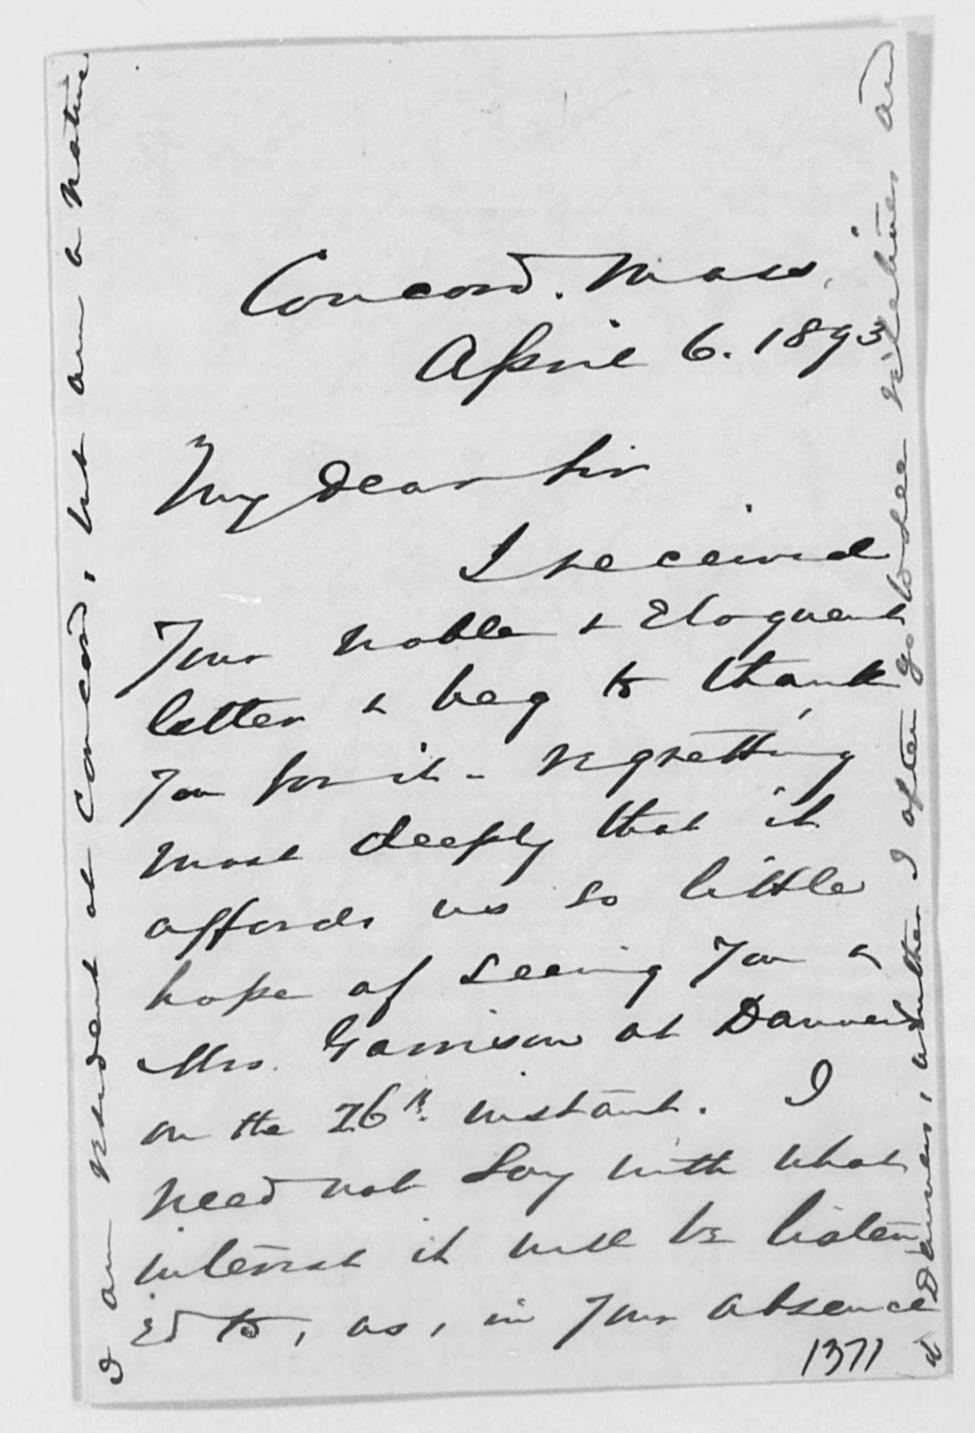 Concord. Mass,
April 6. 1893
My dear Sir
I received
Your noble & Eloquent
letter & beg to thank
You for it - regretting
most deeply that it
affords us so little
hope of seeing You &
Mrs. Garrison at Danvers
on the 26th. instant. I
need not say with what
interest it will be listen
ed to, as, in Your absence
1371
I am resident at Concord, but am a native
of Danvers, whither I often go to see relatives and